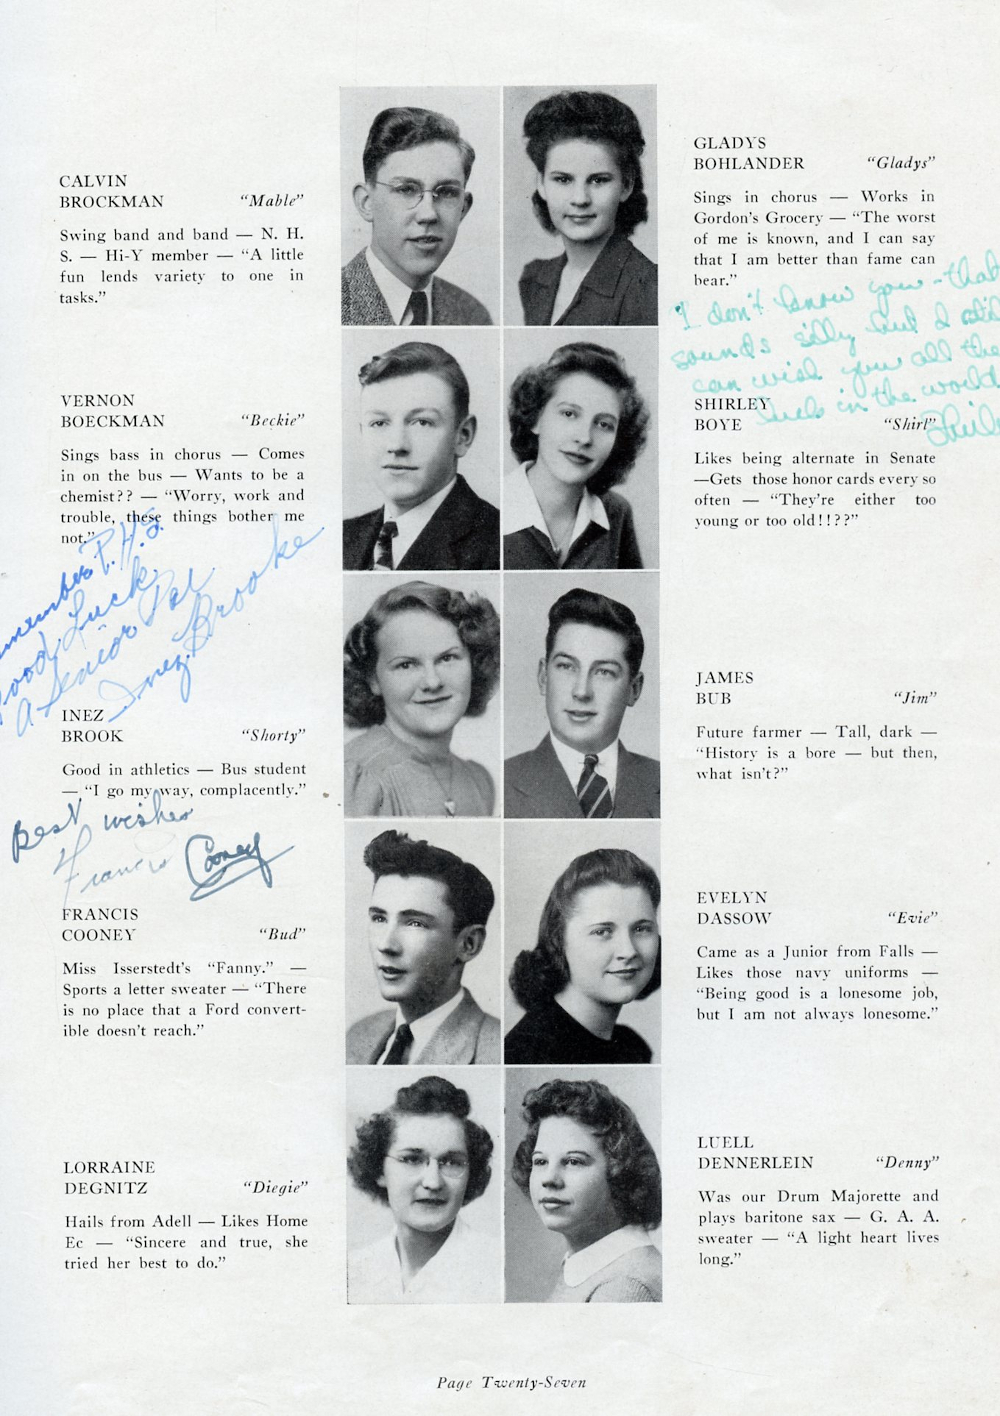 CALVIN
BROCKMAN "Mable"
Swing band and band — N. H.
S. — Hi-Y member — "A little
fun lends variety to one in
tasks."
VERNON
BOECKMAN "Beckie"
Sings bass in chorus — Comes
in on the bus — Wants to be a
chemist?? — "Worry, work and
trouble, these things bother me
not."
P.H.S.
Good Luck
A Senior Pal
Inez Brooke
INEZ
BROOK "Shorty"
Good in athletics — Bus student
— "I go my way, complacently."
Best wishes
Francis Cooney
FRANCIS
COONEY "Bud"
Miss Isserstedt's "Fanny." —
Sports a letter sweater — "There
is no place that a Ford convert-
ible doesn't reach."
LORRAINE
DEGNITZ "Diegie"
Hails from Adell — Likes Home
Ec — "Sincere and true, she
tried her best to do."
GLADYS
BOHLANDER "Gladys"
Sings in chorus — Works in
Gordon's Grocery — "The worst
of me is known, and I can say
that I am better than fame can
bear."
I don't know you - that
sounds silly but I still
can wish you all the
luck in the world
SHIRLEY
BOYE "Shirl"
Likes being alternate in Senate
—Gets those honor cards every so
often — "They're either too
young or too old!!??"
JAMES
BUB "Jim"
Future farmer — Tall, dark —
"History is a bore — but then,
what isn't?"
EVELYN
DASSOW "Evie"
Came as a Junior from Falls —
Likes those navy uniforms —
"Being good is a lonesome job,
but I am not always lonesome."
LUELL
DENNERLEIN "Denny"
Was our Drum Majorette and
plays baritone sax — G. A. A.
sweater — "A light heart lives
long."
Page Twenty-Seven